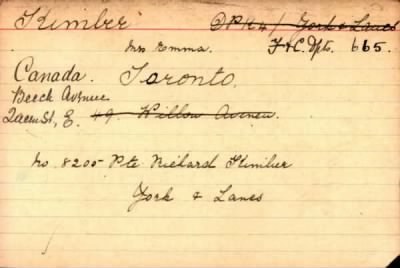 Kimber @ PR 4/ York & Lancs
Mrs Emma. F & C. Dpts. 665.
Canada. Toronto.
Beech Avenue
Queen St, E. 49 Willow Avenue
No 8205 Pte Richard Kimber
York & Lancs